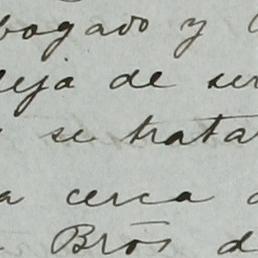 bogado y
deja de ser
se trata
a cerca
Brōs d